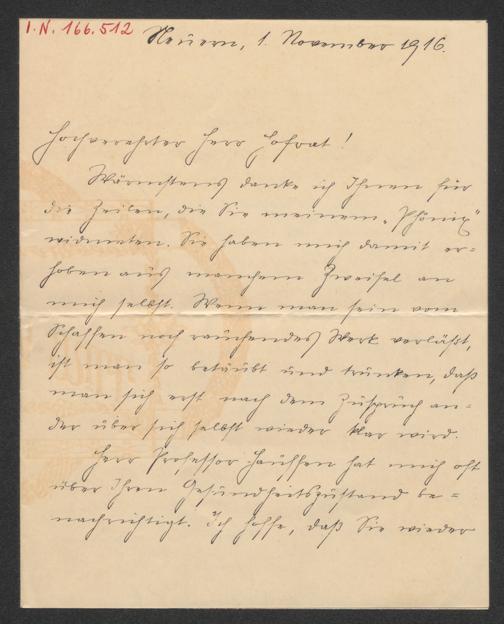 I.N. 166.512
Neuern, 1. November 1916.
Hochverehrter Herr Hofrat!
Wärmstens danke ich Ihnen für
die Zeilen, die Sie meinem „Phönix"
widmeten. Sie haben mich damit er=
hoben aus manchem Zweifel an
mich selbst. Wenn man sein vom
Schaffen noch rauchendes Werk verläßt,
ist man so betäubt und trunken, daß
man sich erst nach dem Zuspruch an=
der über sich selbst wieder klar wird.
Herr Professor Hauffen hat mich oft
über Ihren Gesundheitszustand be=
nachrichtigt. Ich hoffe, daß Sie wieder